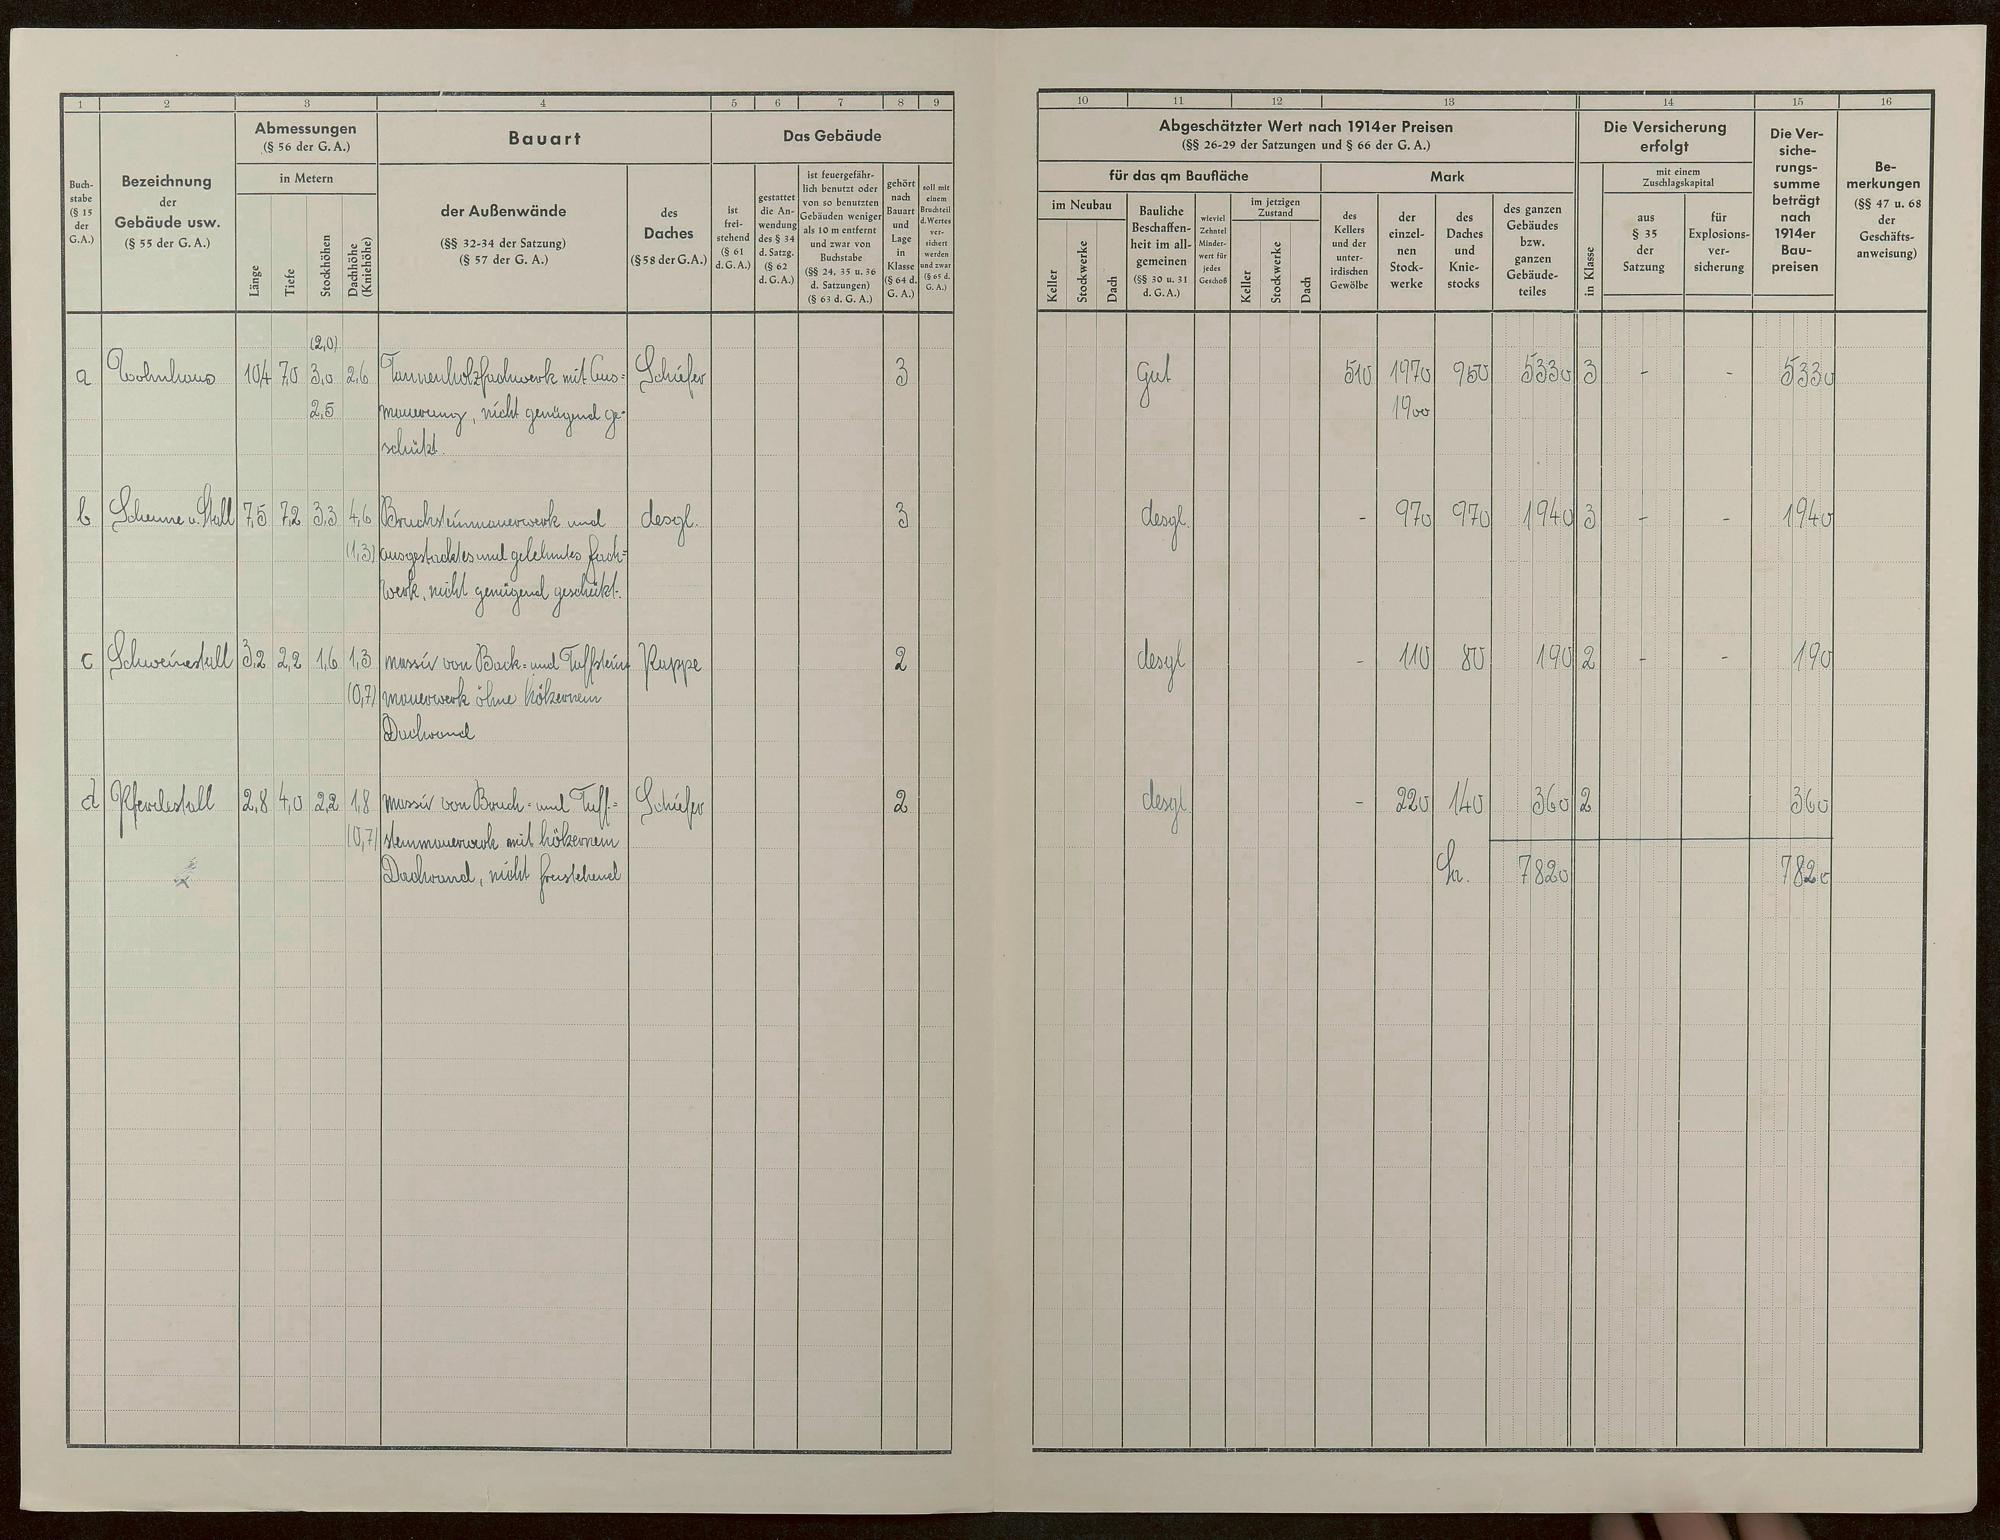 1 2 3 4 5 6 7 8 9
Buch-
stabe
(§ 15
der
G.A.)
Bezeichnung
der
Gebäude usw.
(§ 55 der G. A.)
Abmessungen
(§ 56 der G. A.)
in Metern
Länge
Tiefe
Stockhöhen
Dachhöhe
(Kniehöhe)
Bauart
der Außenwände
(§§ 32-34 der Satzung)
(§ 57 der G. A.)
des
Daches
(§ 58 der G. A.)
Das Gebäude
ist
frei-
stehend
(§ 61
d. G. A.)
gestattet
die An-
wendung
des § 34
d. Satzg.
(§ 62
d. G. A.)
ist feuergefähr-
lich benutzt oder
von so benutzten
Gebäuden weniger
als 10 m entfernt
und zwar von
Buchstabe
(§§ 24, 35 u. 36
d. Satzungen)
(§ 63 d. G. A.)
gehört
nach
Bauart
und
Lage
in
Klasse
(§ 64 d.
G. A.)
soll mit
einem
Bruchteil
d. Wertes
ver-
sichert
werden
und zwar
(§ 65 d.
G. A.)
(2,0)
a Wohnhaus 10,4 7,0 3,0 2,6 Tannenholzfachwerk mit Aus= Schiefer 3
2,5 mauerung, nicht genügend ge-
schützt.
b Scheune u. Stall 7,5 7,2 3,3 4,6 Bruchsteinmauerwerk und desgl. 3
(1,3) ausgestacktes und gelehmtes Fach=
werk, nicht genügend geschützt.
c Schweinestall 3,2 2,2 1,6 1,3 massiv von Back= und Tuffstein Pappe 2
(0,7) mauerwerk ohne hölzernem
Dachwand
d Pferdestall 2,8 4,0 2,2 1,8 massiv von Bruch= und Tuff= Schiefer 2
(0,7) steinmauerwerk mit hölzernem
Dachwand, nicht freistehend
10 11 12 13 14 15 16
Abgeschätzter Wert nach 1914er Preisen
(§§ 26-29 der Satzungen und § 66 der G. A.)
für das qm Baufläche
im Neubau
Keller
Stockwerke
Dach
Bauliche
Beschaffen-
heit im all-
gemeinen
(§§ 30 u. 31
d. G. A.)
wieviel
Zehntel
Minder-
wert für
jedes
Geschoß
im jetzigen
Zustand
Keller
Stockwerke
Dach
Mark
des
Kellers
und der
unter-
irdischen
Gewölbe
der
einzel-
nen
Stock-
werke
des
Daches
und
Knie-
stocks
des ganzen
Gebäudes
bzw.
ganzen
Gebäude-
teiles
Die Versicherung
erfolgt
in Klasse
mit einem
Zuschlagskapital
aus
§ 35
der
Satzung
für
Explosions-
ver-
sicherung
Die Ver-
siche-
rungs-
summe
beträgt
nach
1914er
Bau-
preisen
Be-
merkungen
(§§ 47 u. 68
der
Geschäfts-
anweisung)
Gut 510 1970 950 5330 3 - - 5330
1900
desgl. - 970 970 1940 3 - - 1940
desgl - 110 80 190 2 - - 190
desgl - 220 140 360 2 360
Sa. 7820 7820